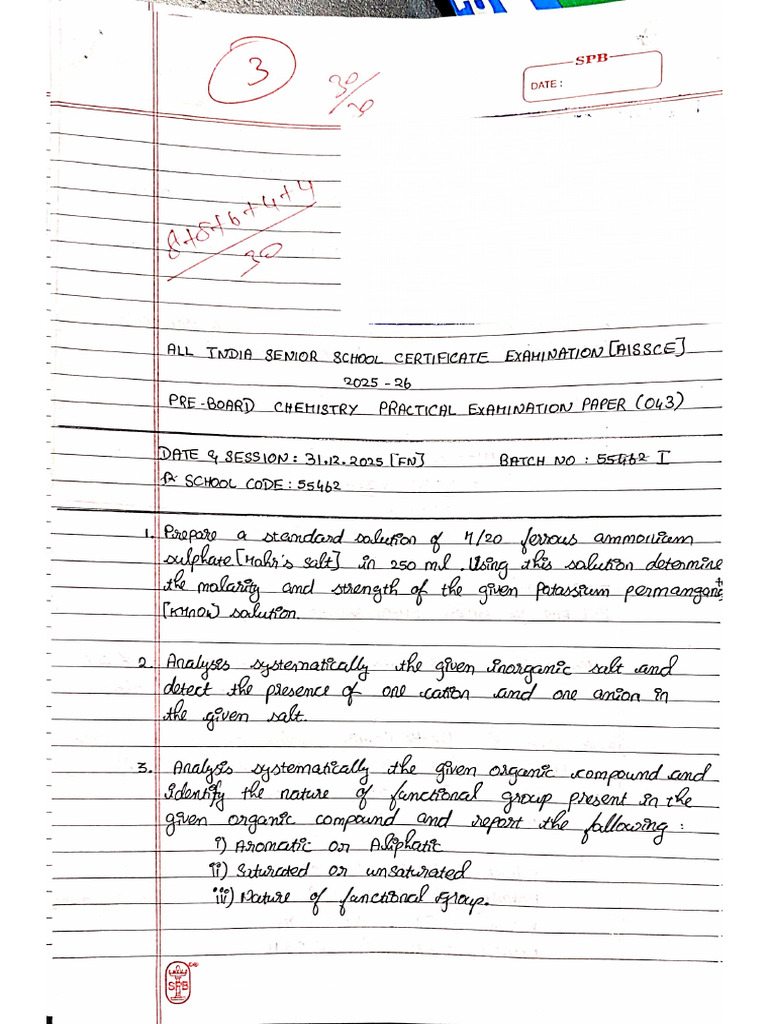 3
30/30
SPB
DATE :
8+8+6+4+4
30
ALL INDIA SENIOR SCHOOL CERTIFICATE EXAMINATION [AISSCE]
2025 - 26
PRE-BOARD CHEMISTRY PRACTICAL EXAMINATION PAPER (043)
DATE & SESSION : 31.12.2025 [FN] BATCH NO : 55462 I
SCHOOL CODE : 55462
1. Prepare a standard solution of M/20 ferrous ammonium
sulphate [Mohr's salt] in 250 ml. Using this solution determine
the molarity and strength of the given Potassium permangante
[KMNO4] solution.
2. Analyses systematically the given inorganic salt and
detect the presence of one cation and one anion in
the given salt.
3. Analysis systematically the given organic compound and
identify the nature of functional group present in the
given organic compound and report the following :
i) Aromatic or Aliphatic
ii) Saturated or unsaturated
iii) Nature of functional Group.
SPB